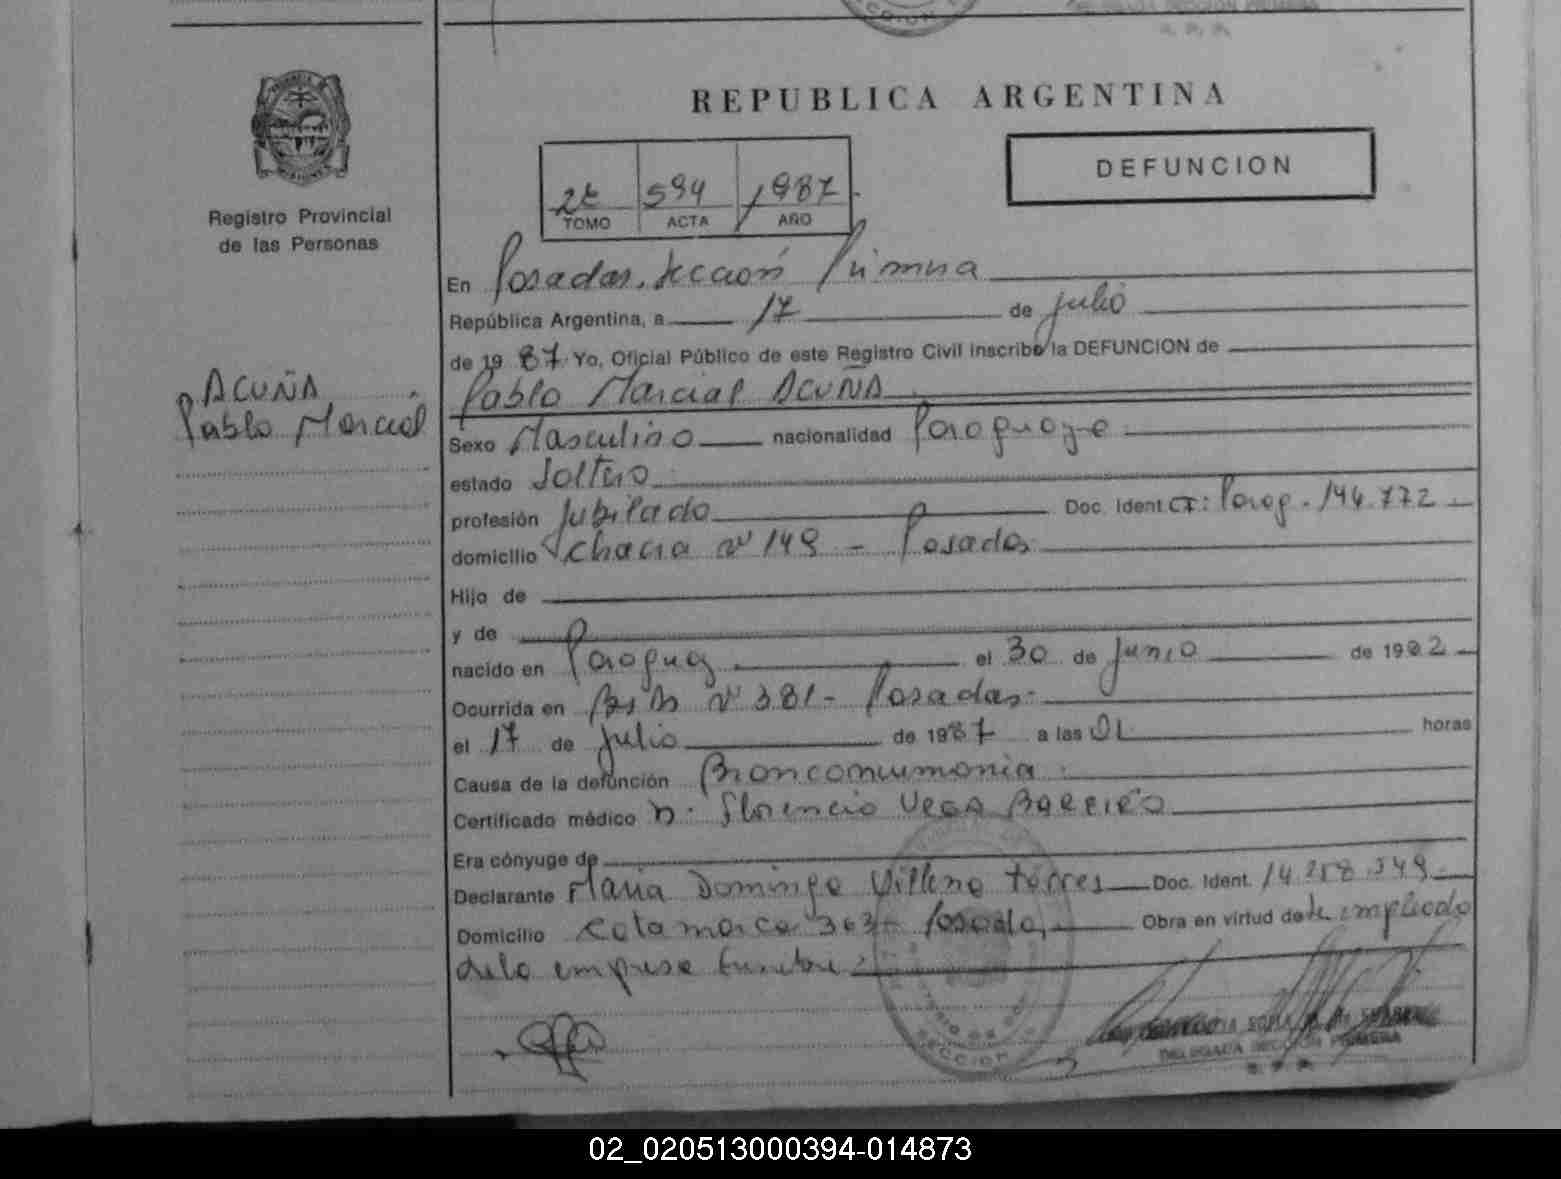 REPUBLICA ARGENTINA
DEFUNCION
594 1987
TOMO ACTA AÑO
Registro Provincial
de las Personas
En Posadas. Sección Primera
República Argentina, a 17 de julio
de 1987 Yo, Oficial Público de este Registro Civil inscribo la DEFUNCION de
ACUÑA
Pablo Marcial
Pablo Marcial ACUÑA
Sexo Masculino nacionalidad Paraguaya
estado Soltero
profesión Jubilado Doc. Ident CI: Parag. 144.772
domicilio chacra Nº 149 - Posadas
Hijo de
y de
nacido en Paraguay el 30 de junio de 1902
Ocurrida en Nº 381 - Posadas
el 17 de julio de 1987 a las 01 horas
Causa de la defunción Bronconeumonia
Certificado médico D. Florencio VEGA BARREIRO
Era cónyuge de
Declarante Maria Domingo Villena Torres Doc. Ident. 14.258.549
Domicilio Catamarca 363 - Posadas Obra en virtud de empleado
dela empresa funebre
SECCION
DELEGADA SECCION PRIMERA
R. P. P.
02_020513000394-014873